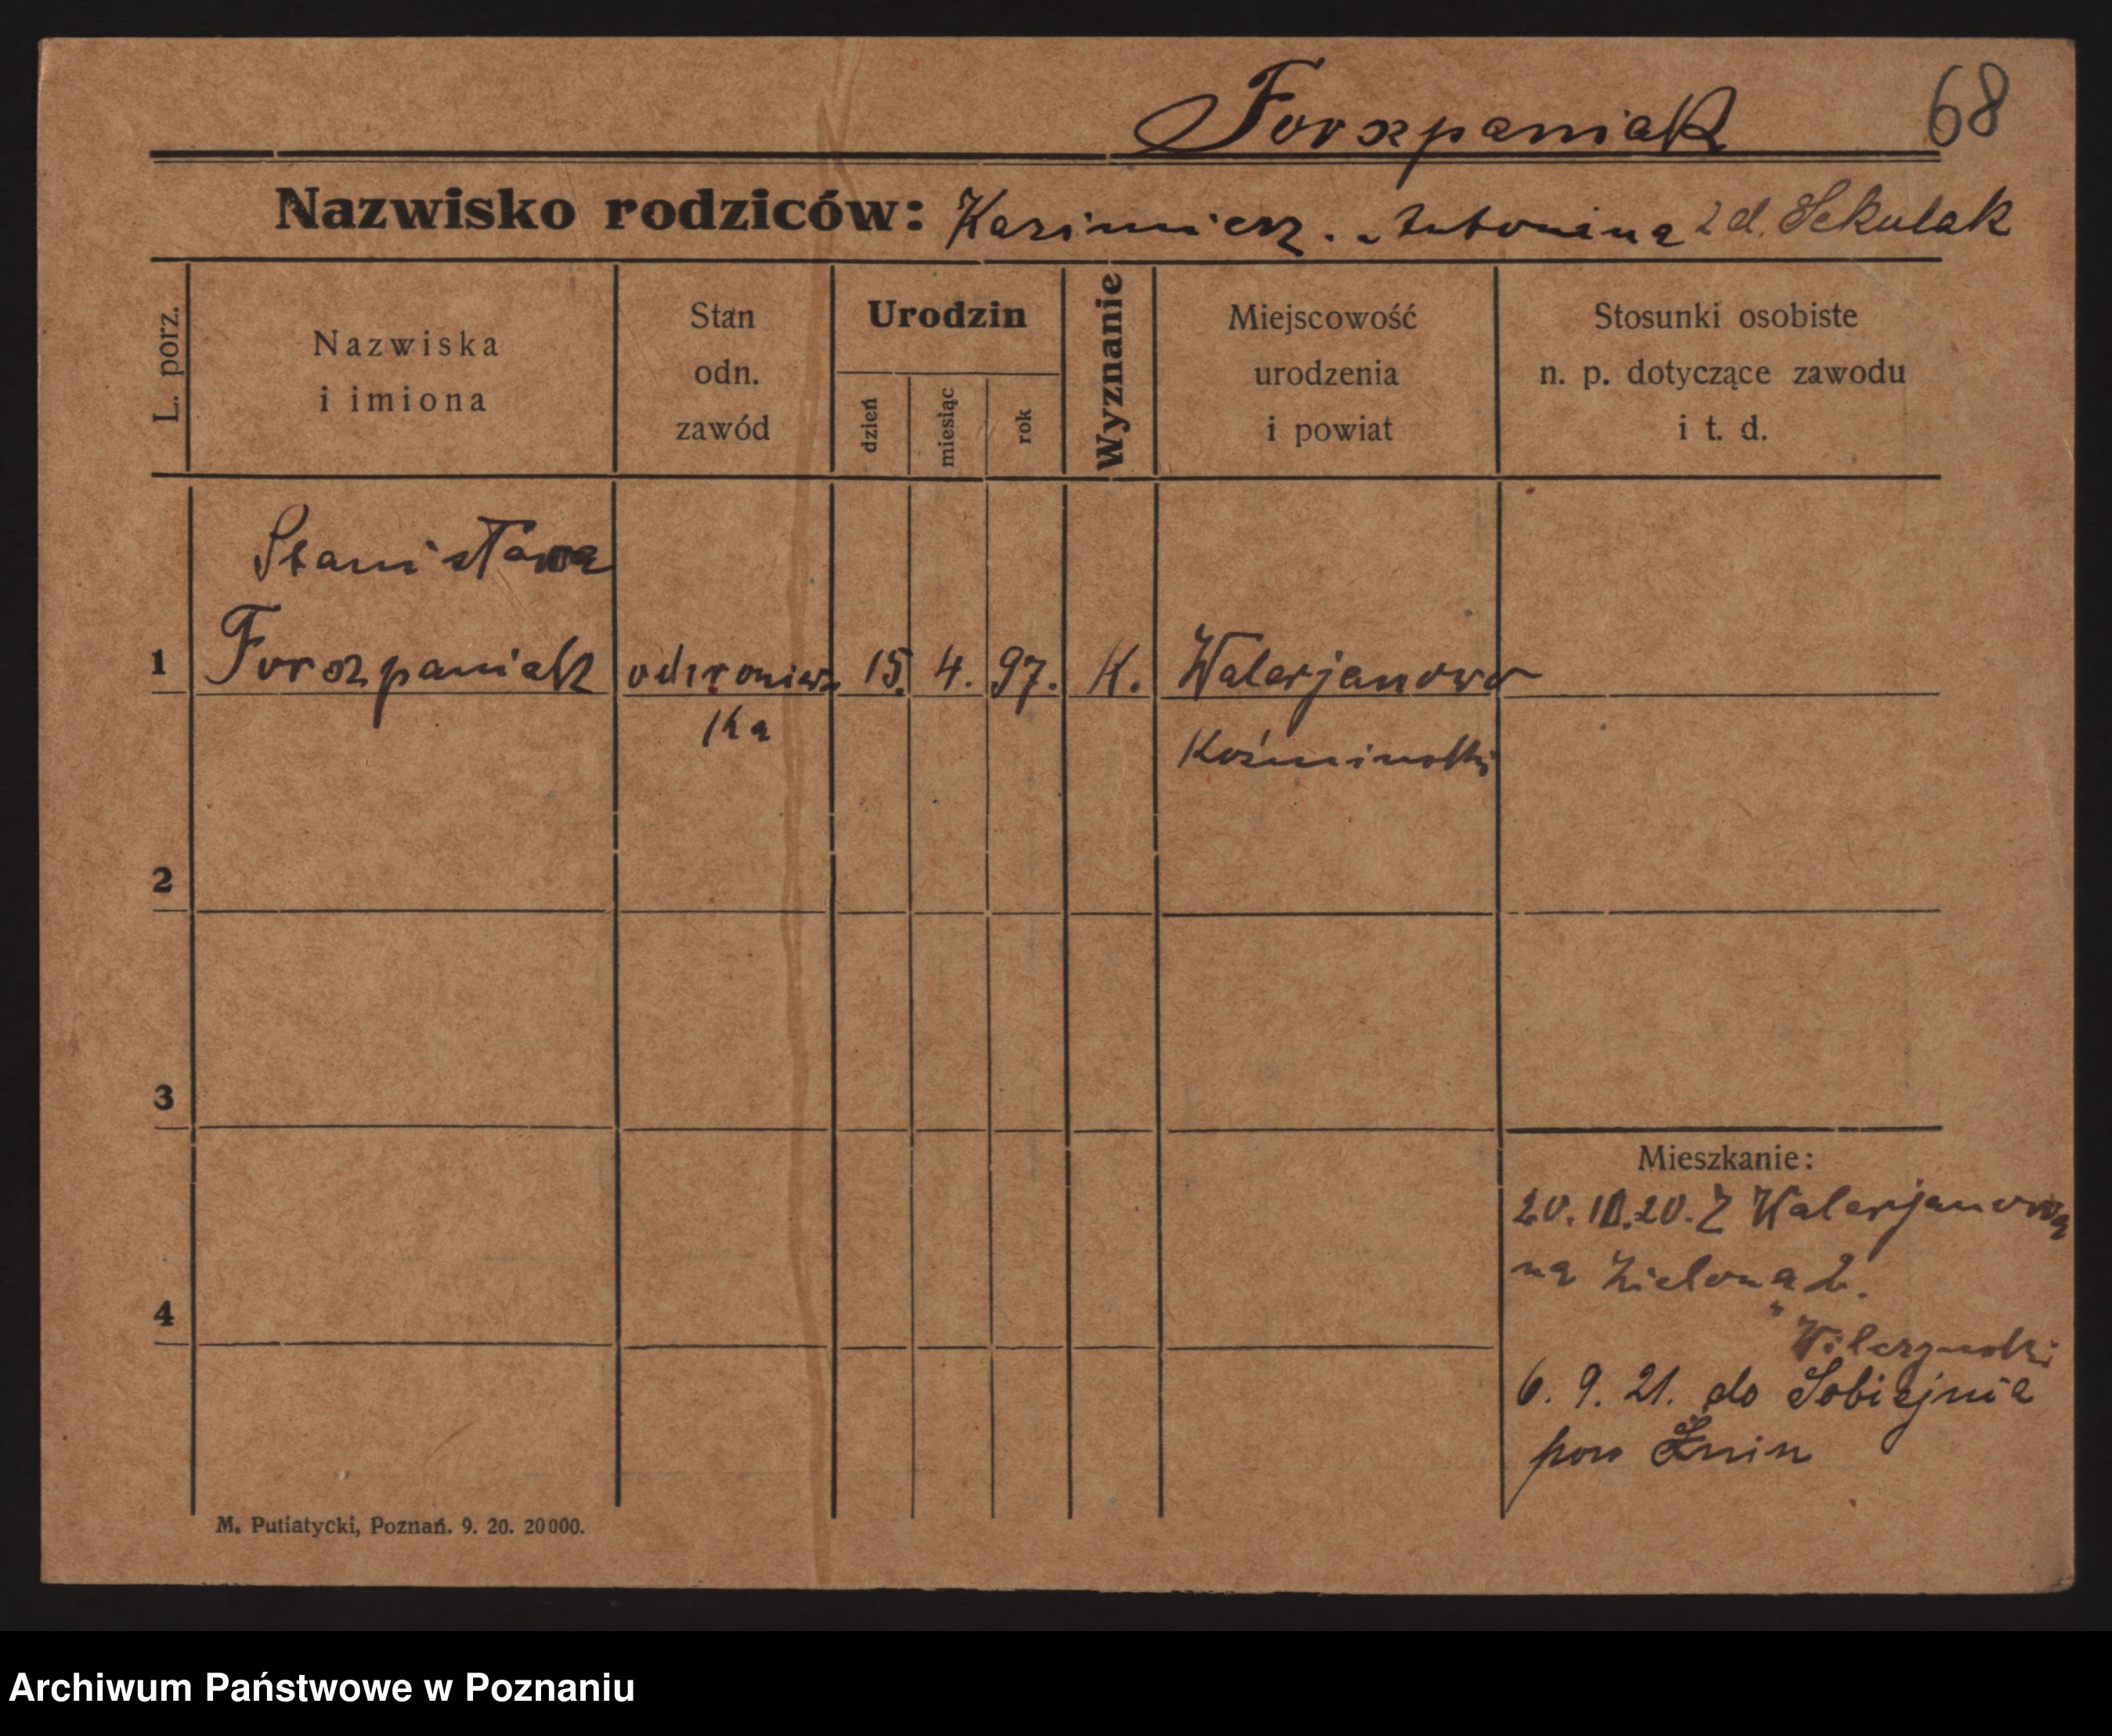 Forszpaniak
68
Nazwisko rodziców: Kazimierz. Antonina z d. Sekulak
L. porz.
Nazwiska
i imiona
Stan
odn.
zawód
Urodzin
dzień
miesiąc
rok
Wyznanie
Miejscowość
urodzenia
i powiat
Stosunki osobiste
n. p. dotyczące zawodu
i t. d.
Stanisława
1 Forszpaniak ochroniarz 15. 4. 97. K. Walerjanowo
ka
Koźmiński
2
3
Mieszkanie:
20. III. 20. Z Walerjanowa
na Zielona 2.
4
6. 9. 21. do Sobiejnia
pow Żnin
M. Putiatycki, Poznań. 9. 20. 20000.
Archiwum Państwowe w Poznaniu